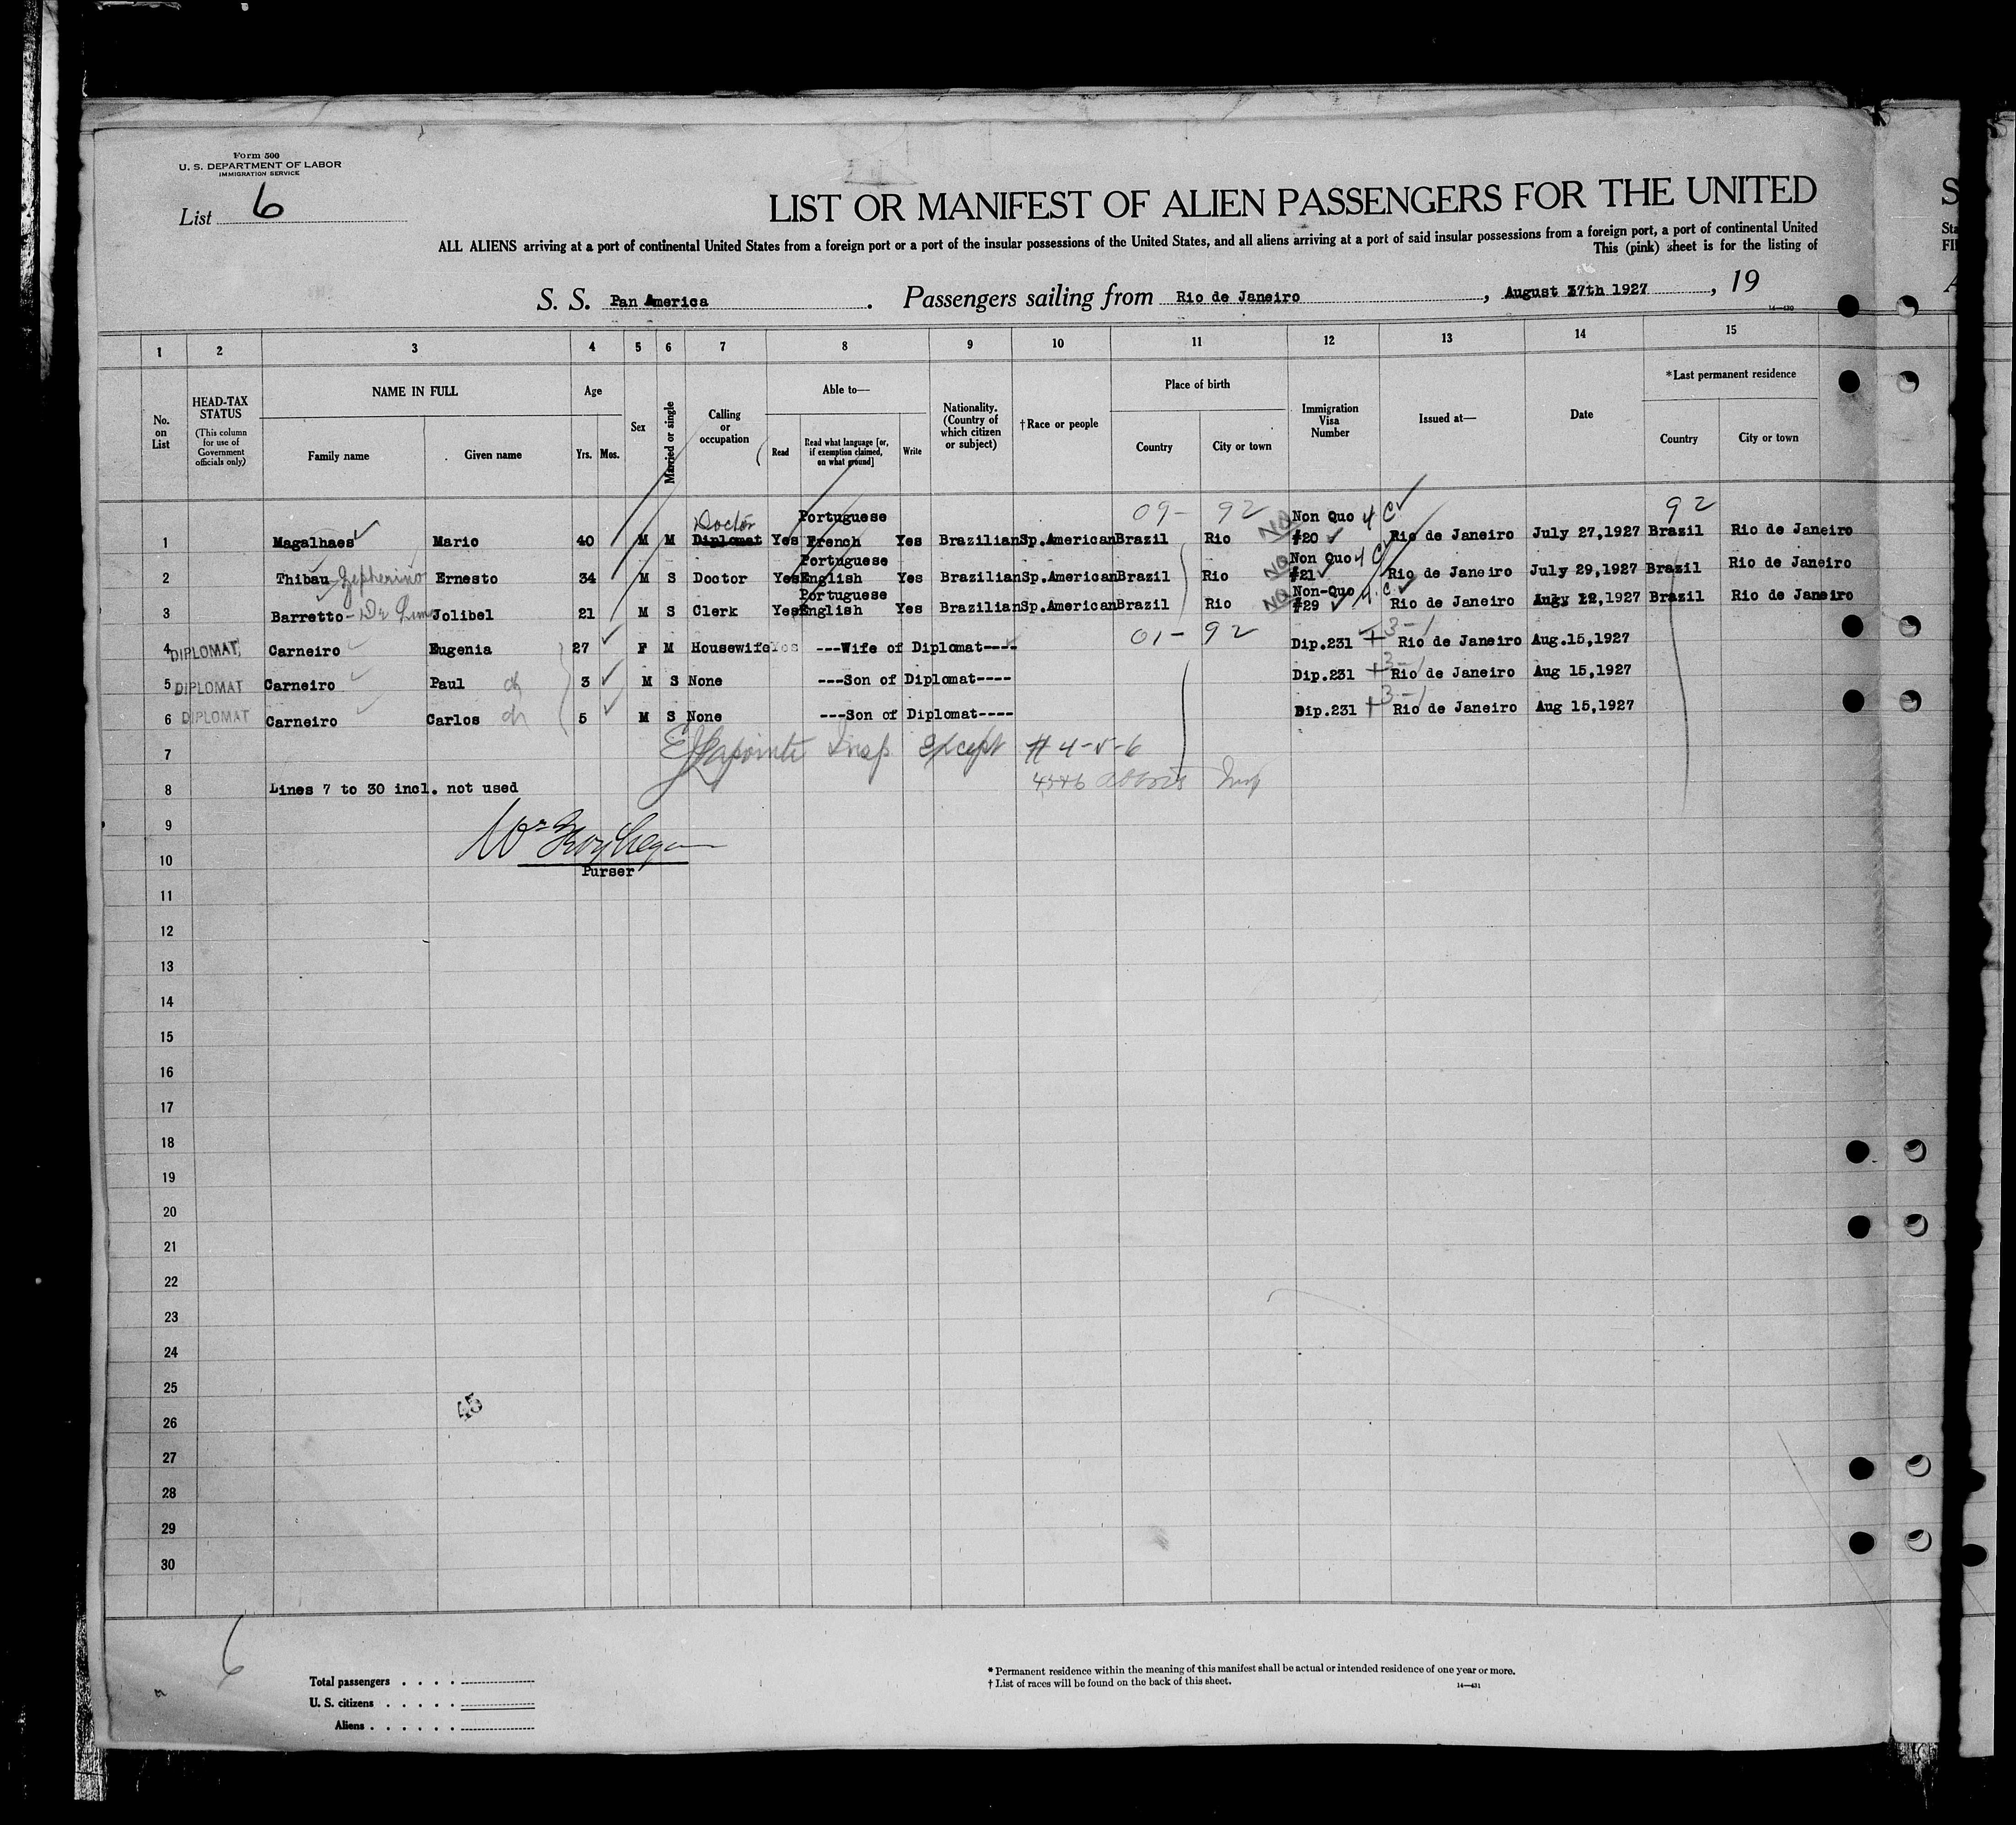 Form 500
U. S. DEPARTMENT OF LABOR
IMMIGRATION SERVICE
List 6
LIST OR MANIFEST OF ALIEN PASSENGERS FOR THE UNITED
ALL ALIENS arriving at a port of continental United States from a foreign port or a port of the insular possessions of the United States, and all aliens arriving at a port of said insular possessions from a foreign port, a port of continental United
This (pink) sheet is for the listing of
S. S. Pan America. Passengers sailing from Rio de Janeiro, August 27th 1927, 19
14—430
1 2 3 4 5 6 7 8 9 10 11 12 13 14 15
No. on List
HEAD-TAX STATUS
(This column for use of Government officials only)
NAME IN FULL
Family name Given name
Age
Yrs. Mos.
Sex
Married or single
Calling or occupation
Able to—
Read Read what language [or, if exemption claimed, on what ground] Write
Nationality. (Country of which citizen or subject)
†Race or people
Place of birth
Country City or town
Immigration Visa Number
Issued at—
Date
*Last permanent residence
Country City or town
09- 92 92
1 Magalhaes Mario 40 M M Diplomat Doctor Yes Portuguese French Yes Brazilian Sp.American Brazil Rio NO Non Quo 4 C #20 Rio de Janeiro July 27,1927 Brazil Rio de Janeiro
2 Thibau-Zepherino Ernesto 34 M S Doctor Yes Portuguese English Yes Brazilian Sp.American Brazil Rio NO Non Quo 4 C #21 Rio de Janeiro July 29,1927 Brazil Rio de Janeiro
3 Barretto- Jolibel 21 M S Clerk Yes Portuguese English Yes Brazilian Sp.American Brazil Rio NO Non-Quo 4.C #29 Rio de Janeiro 1927 Brazil Rio de Janeiro
01- 92
4 DIPLOMAT Carneiro Eugenia 27 F M Housewife Yes ---Wife of Diplomat---- Dip.231 + 3-1 Rio de Janeiro Aug.15,1927
5 DIPLOMAT Carneiro Paul ch 3 M S None ---Son of Diplomat---- Dip.231 + 3-1 Rio de Janeiro Aug 15,1927
6 DIPLOMAT Carneiro Carlos ch 5 M S None ---Son of Diplomat---- Dip.231 + 3-1 Rio de Janeiro Aug 15,1927
7 Lapointe Insp. Except #4-5-6
8 Lines 7 to 30 incl. not used Insp
9
10
Purser
11
12
13
14
15
16
17
18
19
20
21
22
23
24
25
45
26
27
28
29
30
6
Total passengers . . . .
U. S. citizens . . . . .
Aliens . . . . . .
* Permanent residence within the meaning of this manifest shall be actual or intended residence of one year or more.
† List of races will be found on the back of this sheet.
14—431